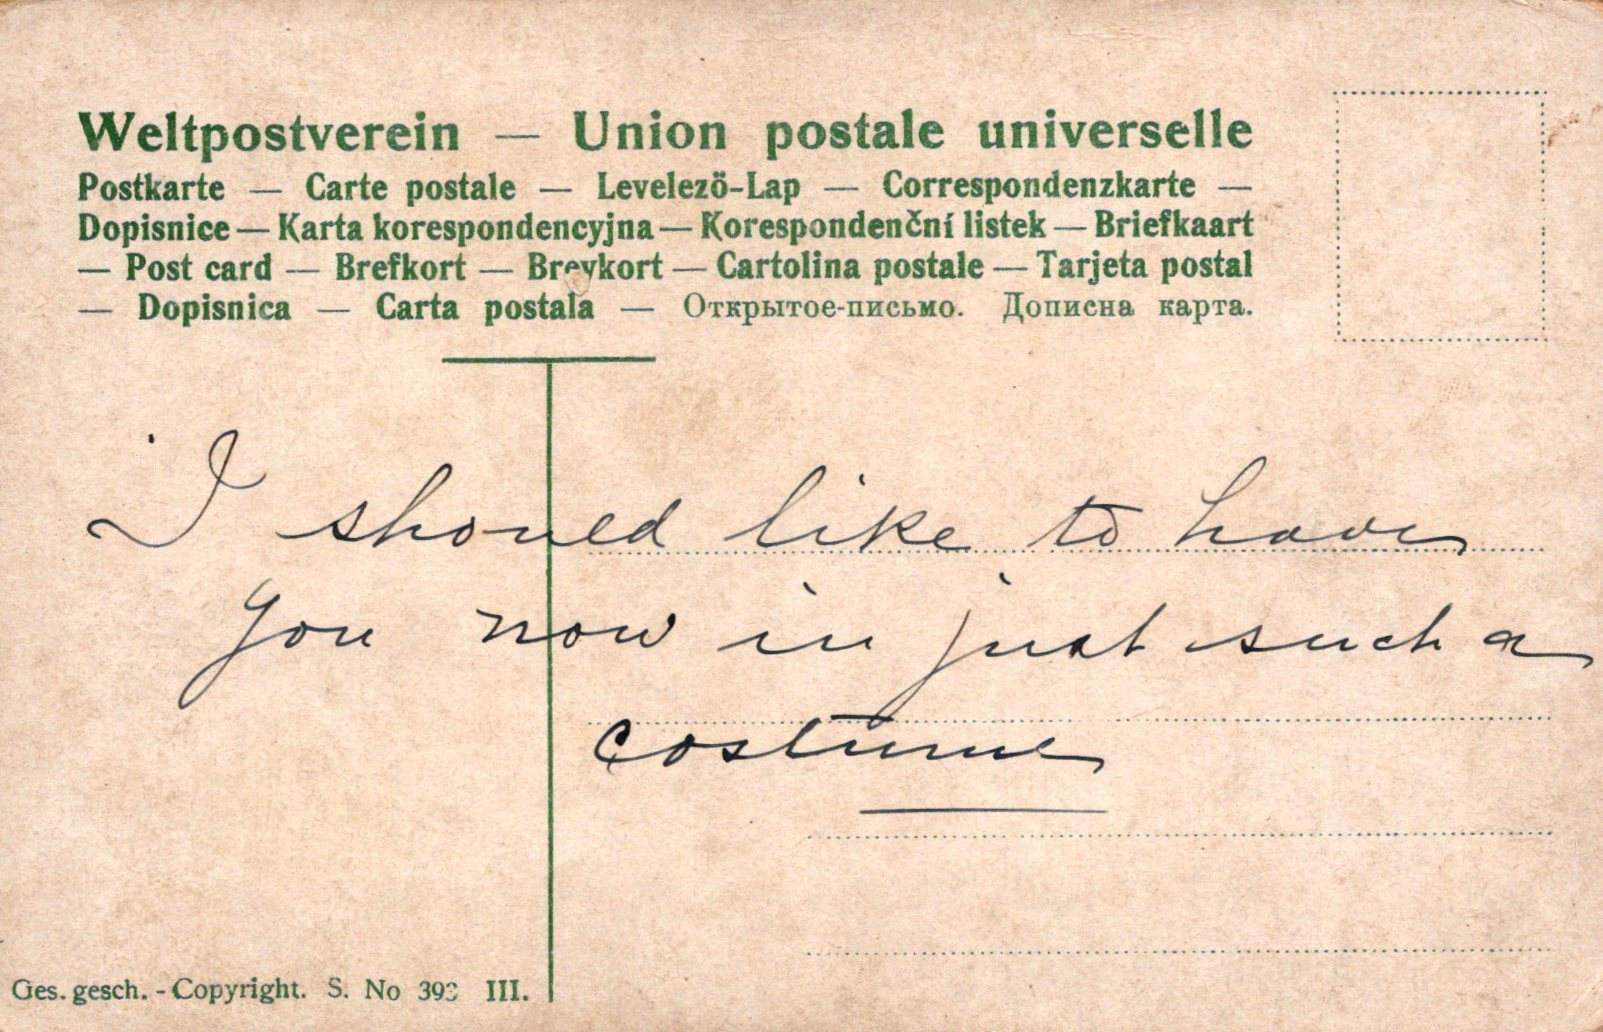 Weltpostverein — Union postale universelle
Postkarte — Carte postale — Levelezö-Lap — Correspondenzkarte —
Dopisnice — Karta korespondencyjna — Korespondenční listek — Briefkaart
— Post card — Brefkort — Brevkort — Cartolina postale — Tarjeta postal
— Dopisnica — Carta postala — Открытое-письмо. Дописна карта.
I should like to have
you now in just such a
costume
Ges. gesch. - Copyright. S. No 393 III.